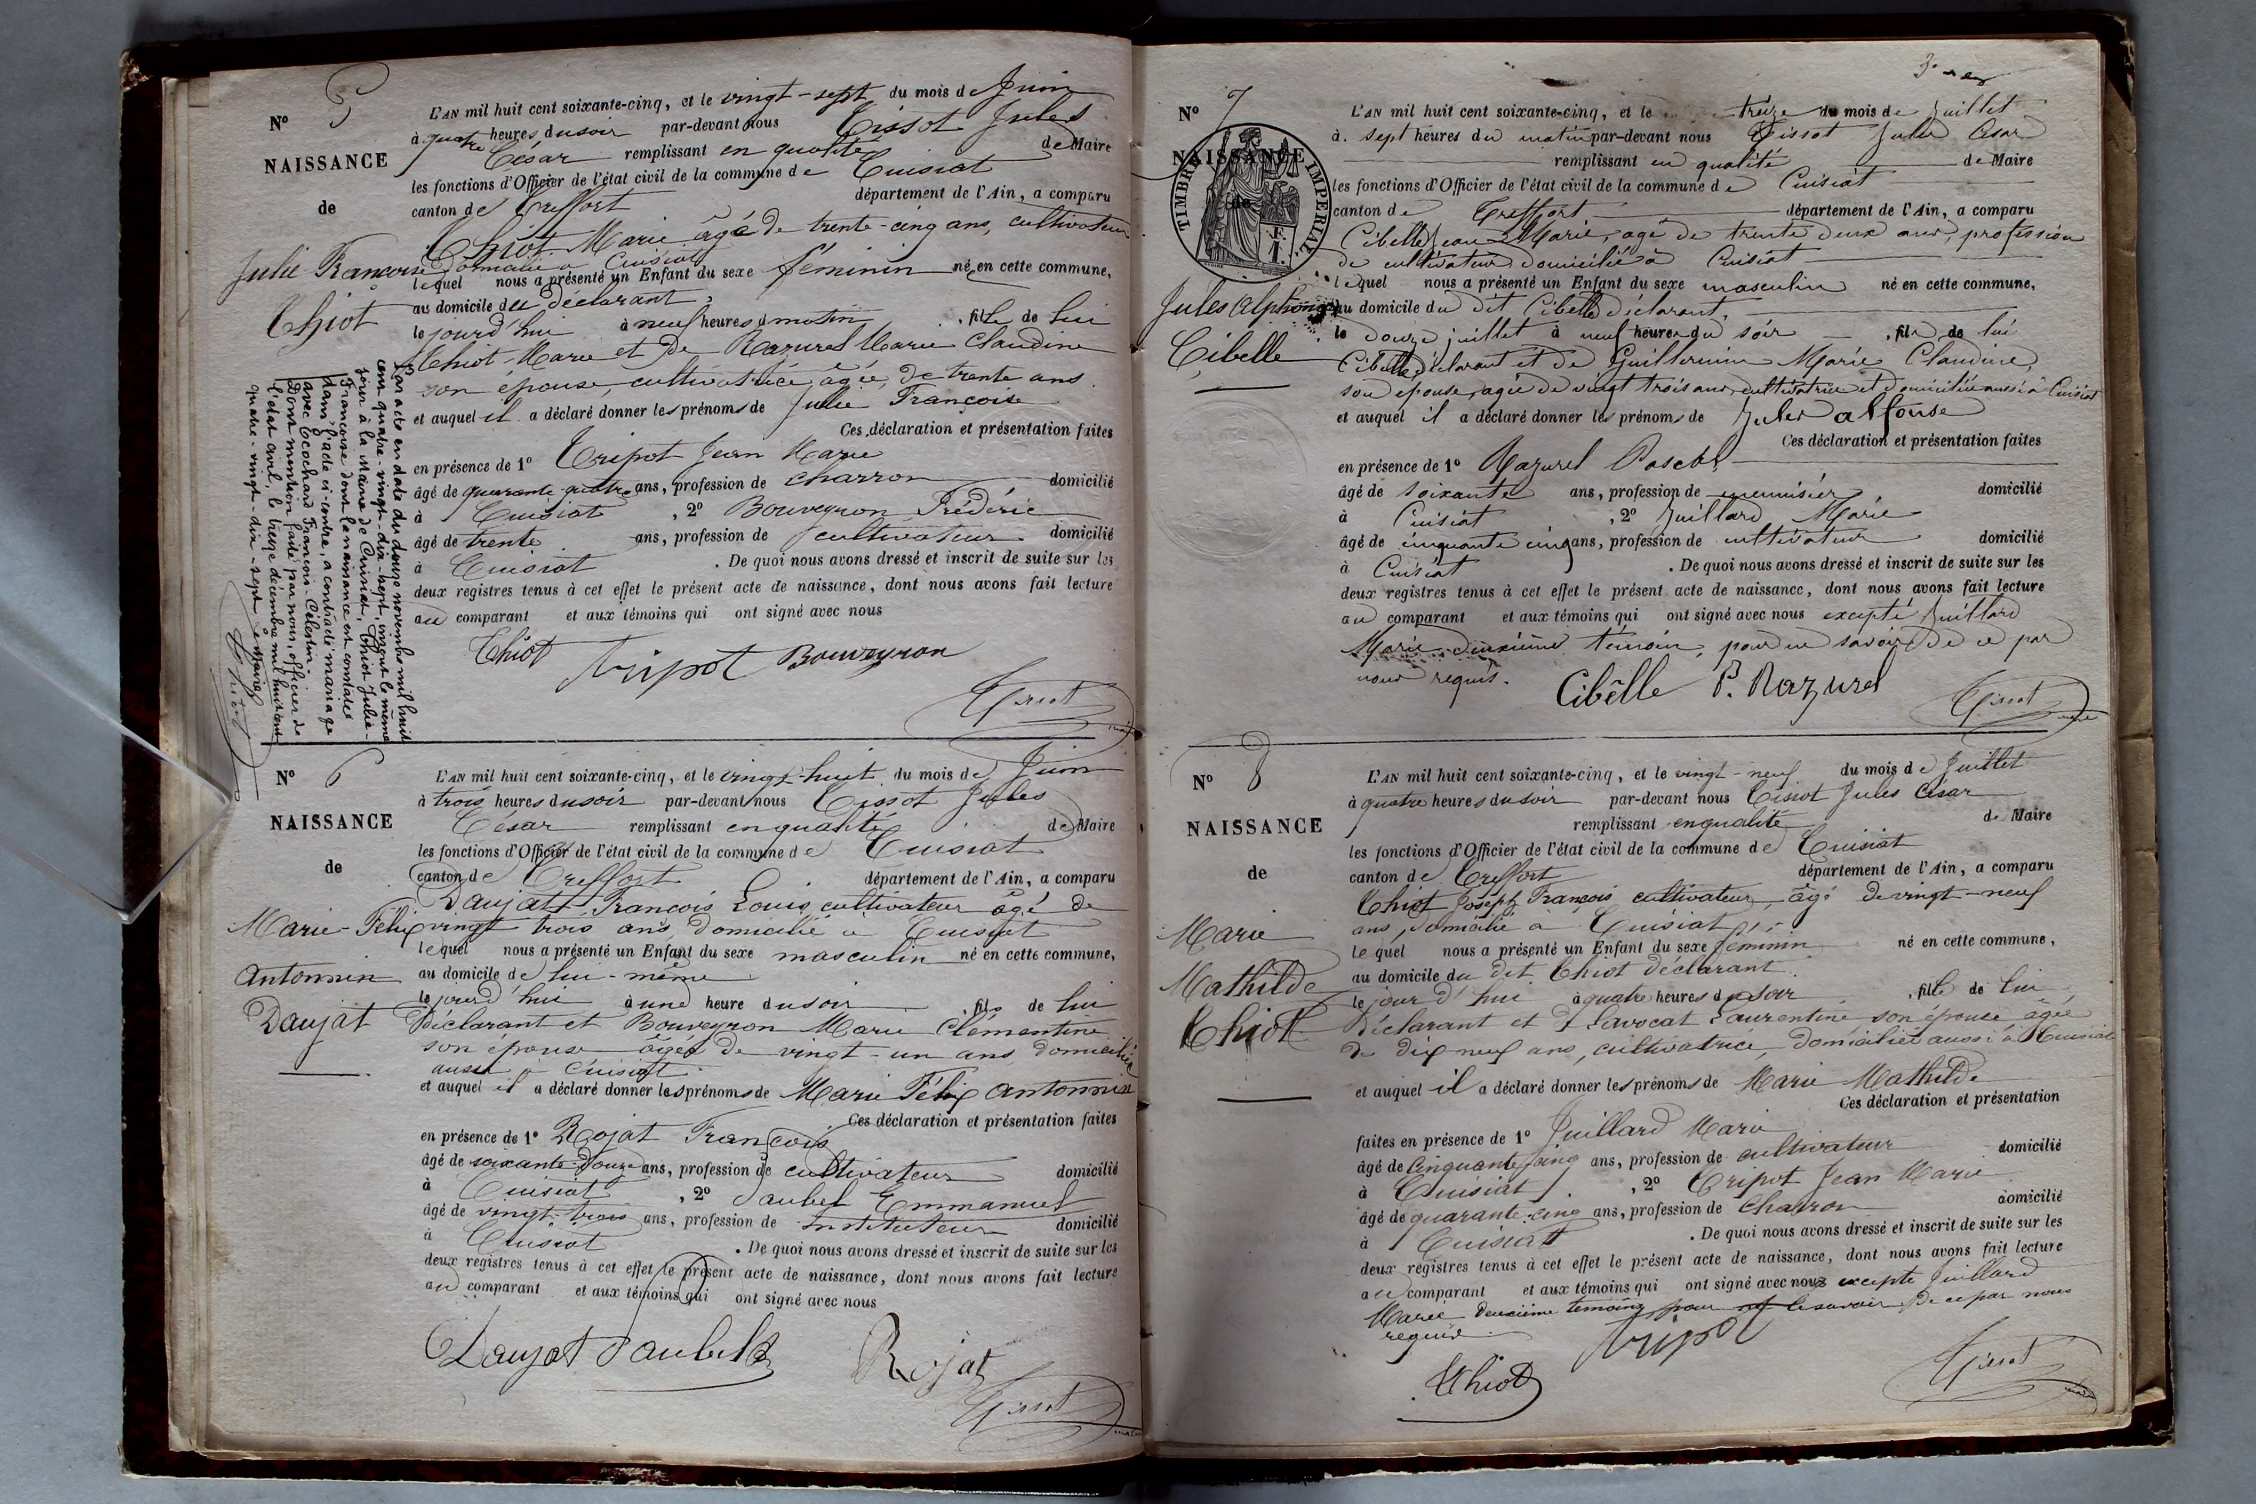 Nº 5
NAISSANCE
de
Julie Françoise
Thiot
L'AN mil huit cent soixante-cinq, et le vingt-sept du mois de Juin
à quatre heures du soir par-devant nous Tissot Jules
César remplissant en qualité de Maire
les fonctions d'Officier de l'état civil de la commune de Cuisiat
canton de Treffort département de l'Ain, a comparu
Thiot Marie âgé de trente-cinq ans, cultivateur
domicilié à Cuisiat
lequel nous a présenté un Enfant du sexe féminin né en cette commune,
au domicile du déclarant,
le jourd'hui à neuf heures du matin, fille de lui
Thiot Marie et de Razurel Marie Claudine
son épouse, cultivatrice, âgée de trente ans
et auquel il a déclaré donner les prénoms de Julie Françoise
Ces déclaration et présentation faites
en présence de 1º Tripot Jean Marie
âgé de quarante-quatre ans, profession de charron domicilié
à Cuisiat, 2º Bouveyron Frédéric
âgé de trente ans, profession de cultivateur domicilié
à Cuisiat. De quoi nous avons dressé et inscrit de suite sur les
deux registres tenus à cet effet le présent acte de naissance, dont nous avons fait lecture
au comparant et aux témoins qui ont signé avec nous
Thiot Tripot Bouveyron
Tissot
Par acte en date du douze novembre mil huit
cent quatre-vingt-dix-sept, inscrit le même
jour à la Mairie de Cuisiat, Thiot Julie-
Françoise dont la naissance est constatée
dans l'acte ci-contre, a contracté mariage
avec Ecochard François-Célestin.
Dont mention faite par nous, officier de
l'état civil, le treize décembre mil huit cent
quatre-vingt-dix-sept. Le Maire,
Thiot
Nº 6
NAISSANCE
de
Marie-Félix
Antonnin
Daujat
L'AN mil huit cent soixante-cinq, et le vingt-huit du mois de Juin
à trois heures du soir par-devant nous Tissot Jules
César remplissant en qualité de Maire
les fonctions d'Officier de l'état civil de la commune de Cuisiat
canton de Treffort département de l'Ain, a comparu
Daujat François Louis cultivateur âgé de
vingt trois ans, domicilié à Cuisiat
lequel nous a présenté un Enfant du sexe masculin né en cette commune,
au domicile de lui-même
le jourd'hui à une heure du soir, fils de lui
Déclarant et Bouveyron Marie Clémentine
son épouse âgée de vingt-un ans domiciliée
aussi à Cuisiat
et auquel il a déclaré donner les prénoms de Marie Félix Antonnin
Ces déclaration et présentation faites
en présence de 1º Rojat François
âgé de soixante-douze ans, profession de cultivateur domicilié
à Cuisiat, 2º Emmanuel
âgé de vingt-trois ans, profession de Instituteur domicilié
à Cuisiat. De quoi nous avons dressé et inscrit de suite sur les
deux registres tenus à cet effet le présent acte de naissance, dont nous avons fait lecture
au comparant et aux témoins qui ont signé avec nous
Daujat Rojat
Tissot
Nº 7
NAISSANCE
de
TIMBRE IMPERIAL
Jules Alphonse
Cibelle
L'AN mil huit cent soixante-cinq, et le treize du mois de Juillet
à sept heures du matin par-devant nous Tissot Jules César
remplissant en qualité de Maire
les fonctions d'Officier de l'état civil de la commune de Cuisiat
canton de Treffort département de l'Ain, a comparu
Cibelle Jean Marie, âgé de trente deux ans, profession
de cultivateur domicilié à Cuisiat
lequel nous a présenté un Enfant du sexe masculin né en cette commune,
au domicile du dit Cibelle déclarant,
le douze juillet à neuf heures du soir, fils de lui
Cibelle déclarant et de Guillermin Marie Claudine,
son épouse, âgée de vingt trois ans, cultivatrice et domiciliée aussi à Cuisiat
et auquel il a déclaré donner les prénoms de Jules alfonse
Ces déclaration et présentation faites
en présence de 1º Razurel
âgé de soixante ans, profession de menuisier domicilié
à Cuisiat, 2º Juillard Marie
âgé de cinquante cinq ans, profession de cultivateur domicilié
à Cuisiat. De quoi nous avons dressé et inscrit de suite sur les
deux registres tenus à cet effet le présent acte de naissance, dont nous avons fait lecture
au comparant et aux témoins qui ont signé avec nous excepté Juillard
Marie deuxième témoin, pour ne savoir de ce par
nous requis.
Cibèlle P. Razurel
Tissot
Nº 8
NAISSANCE
de
Marie
Mathilde
Thiot
L'AN mil huit cent soixante-cinq, et le vingt-neuf du mois de Juillet
à quatre heures du soir par-devant nous Tissot Jules César
remplissant en qualité de Maire
les fonctions d'Officier de l'état civil de la commune de Cuisiat
canton de Treffort département de l'Ain, a comparu
Thiot Joseph François cultivateur, âgé de vingt-neuf
ans, domicilié à Cuisiat
lequel nous a présenté un Enfant du sexe féminin né en cette commune,
au domicile du dit Thiot déclarant
le jour d'hui à quatre heures du soir, fille de lui
Déclarant et Laurentine son épouse âgée
de dix neuf ans, cultivatrice, domiciliée aussi à Cuisiat
et auquel il a déclaré donner les prénoms de Marie Mathilde
Ces déclaration et présentation
faites en présence de 1º Juillard Marie
âgé de cinquante cinq ans, profession de cultivateur domicilié
à Cuisiat, 2º Tripot Jean Marie
âgé de quarante-cinq ans, profession de charron domicilié
à Cuisiat. De quoi nous avons dressé et inscrit de suite sur les
deux registres tenus à cet effet le présent acte de naissance, dont nous avons fait lecture
au comparant et aux témoins qui ont signé avec nous excepté Juillard
Marie deuxième témoins pour ne le savoir de ce par nous
requis
Tripot
Thiot
Tissot